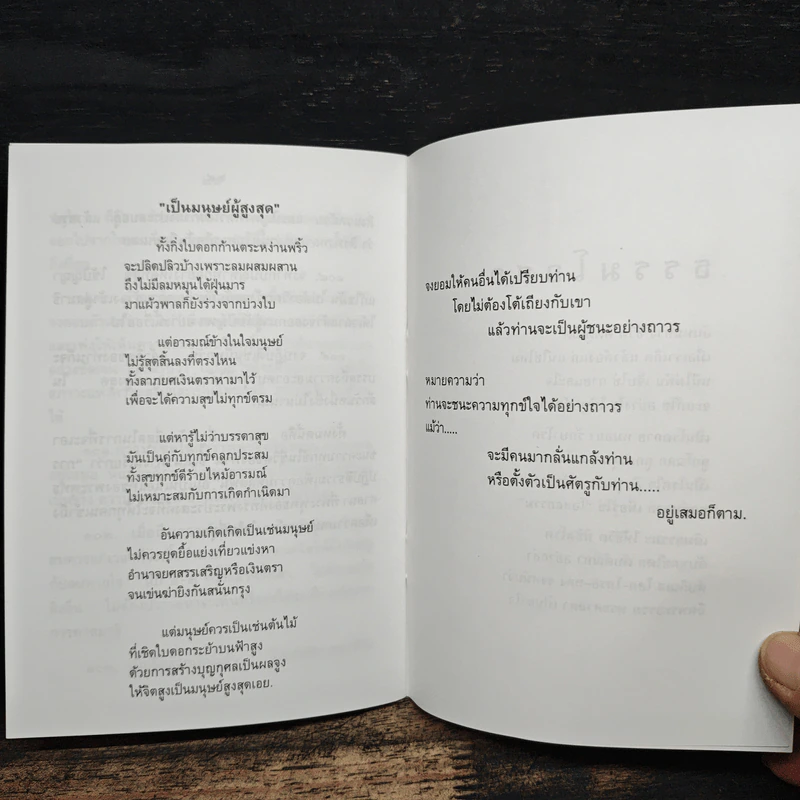 "เป็นมนุษย์ผู้สูงสุด"
ทั้งกิ่งใบดอกก้านตระหง่านพริ้ว
จะปลิดปลิวบ้างเพราะลมผสมผสาน
ถึงไม่มีลมหมุนไต้ฝุ่นมาร
มาแผ้วพาลก็ยังร่วงจากบ่วงใบ
แต่อารมณ์ข้างในใจมนุษย์
ไม่รู้สุดสิ้นลงที่ตรงไหน
ทั้งลาภยศเงินตราหามาไว้
เพื่อจะได้ความสุขไม่ทุกข์ตรม
แต่หารู้ไม่ว่าบรรดาสุข
มันเป็นคู่กับทุกข์คลุกประสม
ทั้งสุขทุกข์ดีร้ายไหม้อารมณ์
ไม่เหมาะสมกับการเกิดกำเนิดมา
อันความเกิดเกิดเป็นเช่นมนุษย์
ไม่ควรยุดยื้อแย่งเที่ยวแข่งหา
อำนาจยศสรรเสริญหรือเงินตรา
จนเข่นฆ่ายิงกันสนั่นกรุง
แต่มนุษย์ควรเป็นเช่นต้นไม้
ที่เชิดใบดอกระย้าบนฟ้าสูง
ด้วยการสร้างบุญกุศลเป็นผลจูง
ให้จิตสูงเป็นมนุษย์สูงสุดเอย.
จงยอมให้คนอื่นได้เปรียบท่าน
โดยไม่ต้องโต้เถียงกับเขา
แล้วท่านจะเป็นผู้ชนะอย่างถาวร
หมายความว่า
ท่านจะชนะความทุกข์ใจได้อย่างถาวร
แม้ว่า.....
จะมีคนมากลั่นแกล้งท่าน
หรือตั้งตัวเป็นศัตรูกับท่าน.....
อยู่เสมอก็ตาม.